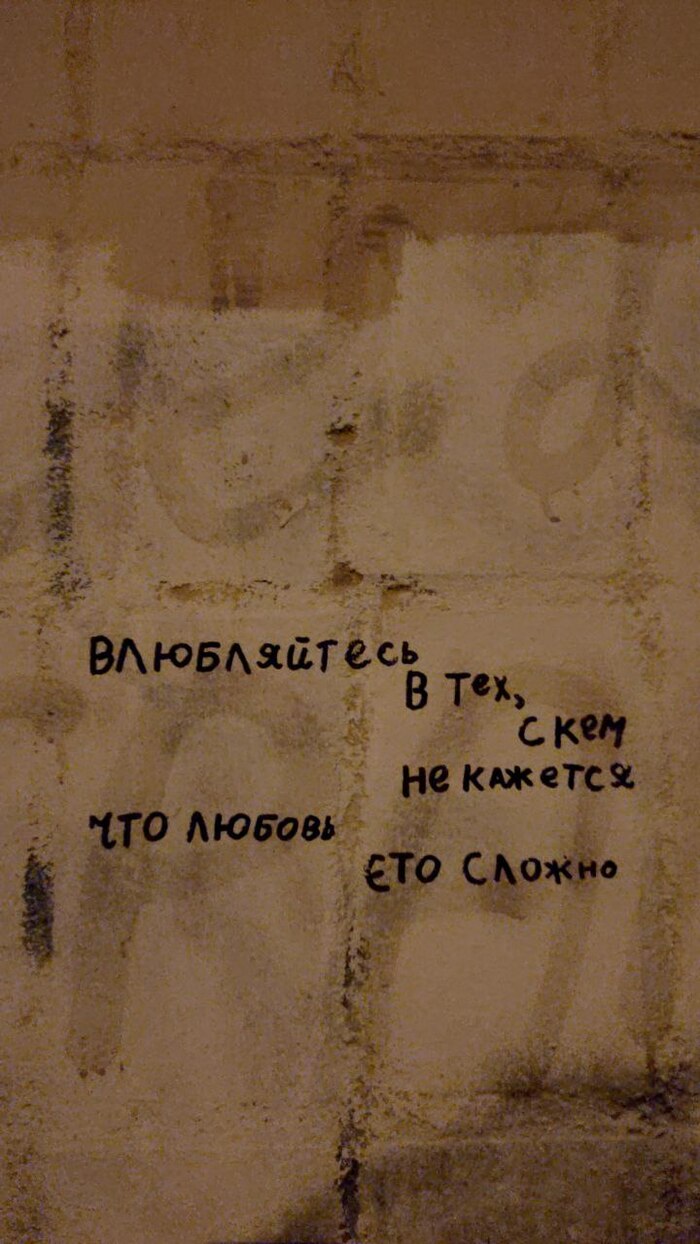 ВЛЮБЛЯЙТЕСЬ
В ТЕХ,
С КЕМ
НЕ КАЖЕТСЯ
ЧТО ЛЮБОВЬ
ЄТО СЛОЖНО